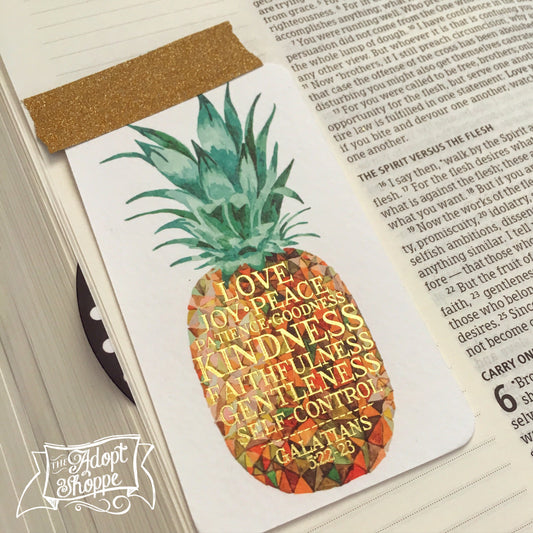 LOVE
JOY•PEACE
PATIENCE•GOODNESS
KINDNESS
FAITHFULNESS
GENTLENESS
SELF-CONTROL
GALATIANS
5:22-23
THE Adopt
Shoppe
from grace.
righteousness.
accomplishes anything
⁷ You were running well. Who prev
persuasion did not come from the One who
the whole lump of dough. ¹⁰ I have confidence in the
any other view. But whoever it is that is confusing
Now brothers, if I still preach circumcision, why
that case the offense of the cross has been abolished
disturbing you might also get themselves castrated
¹³ For you were called to be free, brothers; only
opportunity for the flesh, but serve one another
tire law is fulfilled in one statement: Love y
if you bite and devour one another, watch
one another.
THE SPIRIT VERSUS THE FLESH
¹⁶ I say then, walk by the Spirit a
flesh. ¹⁷ For the flesh desires what
what is against the flesh; these a
what you want. ¹⁸ But if you ar
¹⁹ Now the works of the fle
ty, promiscuity, ²⁰ idolatry,
selfish ambitions, dissen
anything similar. I tell
fore — that those who
²² But the fruit of
faith, ²³ gentlenes
those who belon
desires. ²⁵ Sinc
not become c
CARRY ON
6 "Bro
sh
selv